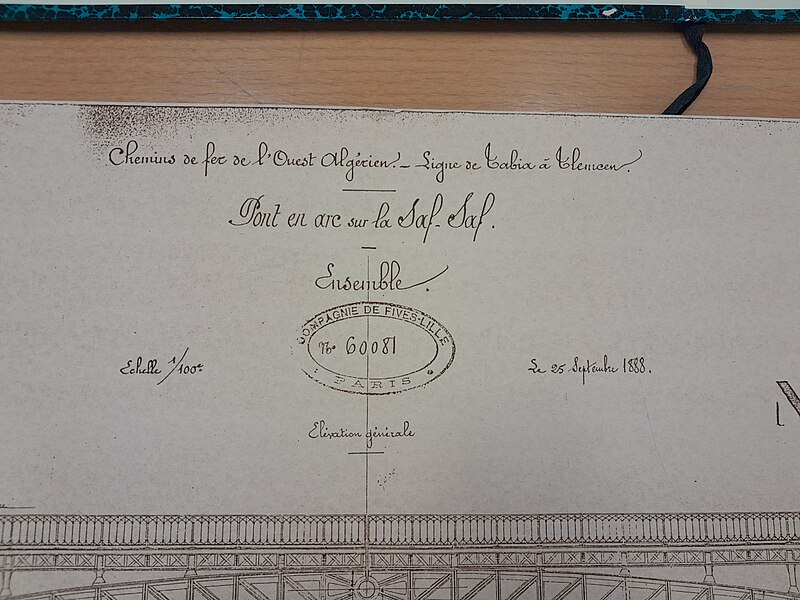 Chemins de fer de l'Ouest Algérien. - Ligne de Tabia à Tlemcen.
Pont en arc sur la Saf-Saf.
Ensemble.
COMPAGNIE DE FIVES-LILLE
N° 60081
PARIS
Echelle 1/100e
Le 25 Septembre 1888.
Elévation générale